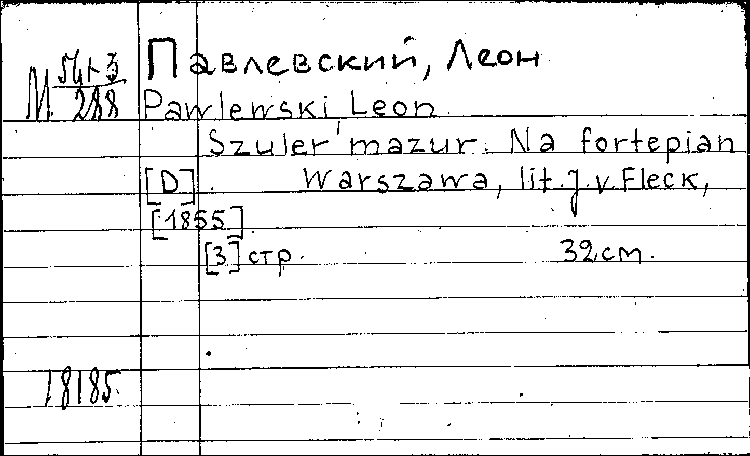 Павлевский, Леон
М 54-3
288
Pawlewski Leon
Szuler mazur. Na fortepian
[D]. Warszawa, lit. J. v. Fleck,
[1855].
[3] стр. 32 см.
18185.